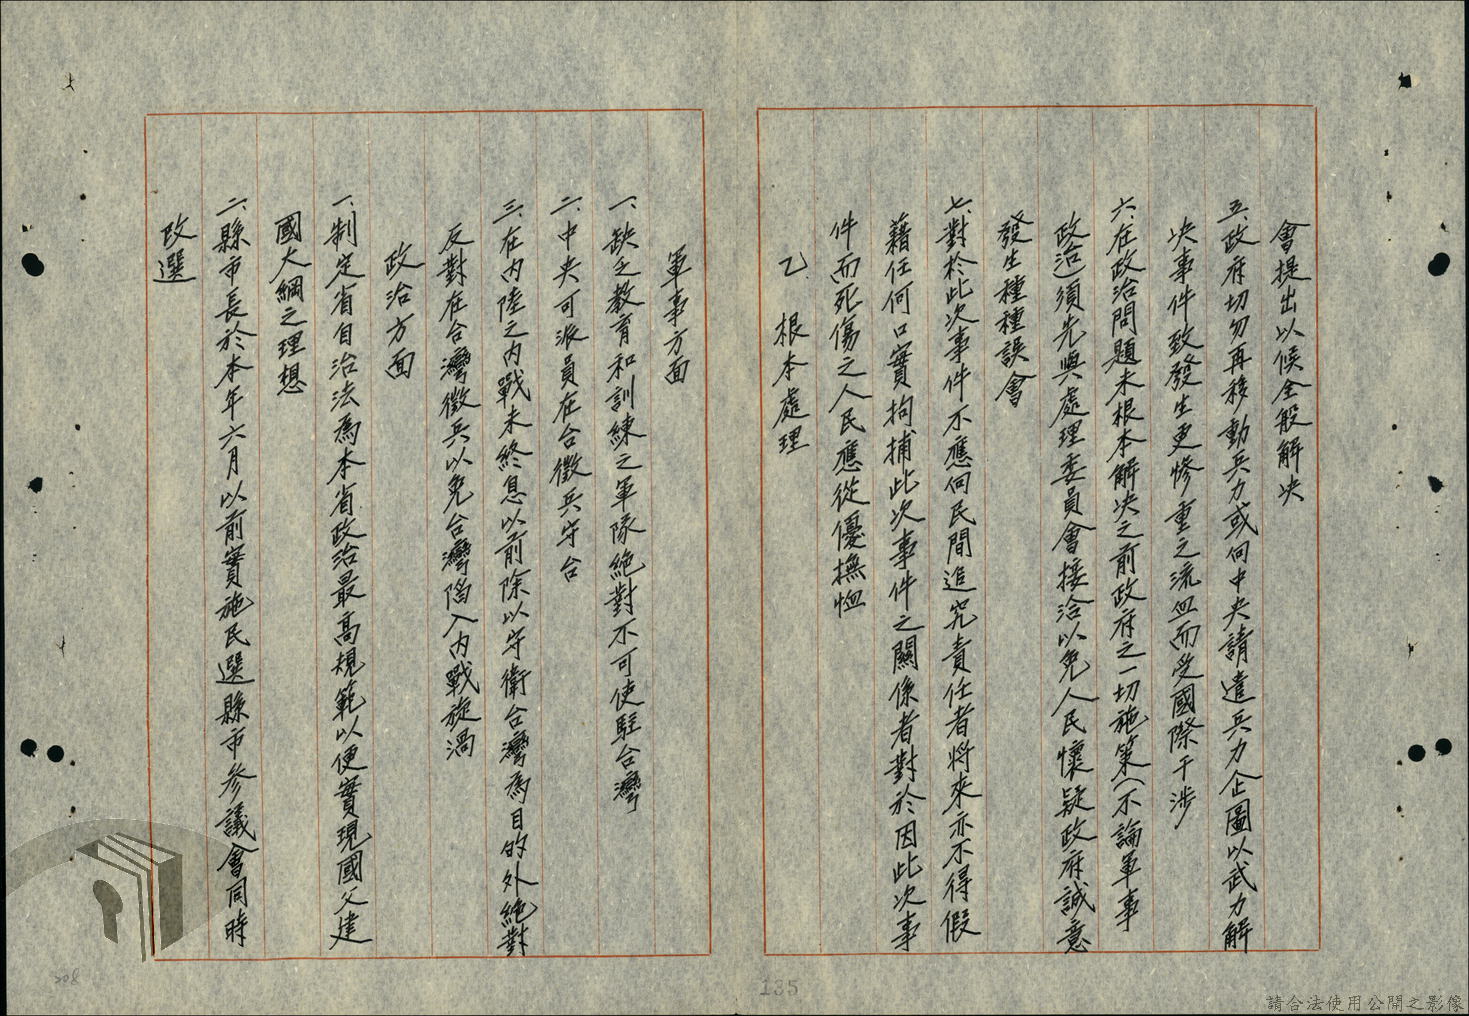 會提出以候全般解决
五、政府切勿再移動兵力或向中央請遣兵力企圖以武力解
决事件致發生更慘重之流血而受國際干涉
六、在政治問題未根本解决之前政府之一切施策（不論軍事
政治）須先與處理委員會接洽以免人民懷疑政府誠意
發生種種誤會
七、對於此次事件不應向民間追究責任者將來亦不得假
藉任何口實拘捕此次事件之關係者對於因此次事
件而死傷之人民應從優撫恤
乙、根本處理
軍事方面
一、缺乏教育和訓練之軍隊絕對不可使駐台灣
二、中央可派員在台徵兵守台
三、在內陸之內戰未終息以前除以守衛台灣為目的外絕對
反對在台灣徵兵以免台灣陷入內戰旋渦
政治方面
一、制定省自治法為本省政治最高規範以便實現國父建
國大綱之理想
二、縣市長於本年六月以前實施民選縣市參議會同時
改選
135
208
請合法使用公開之影像